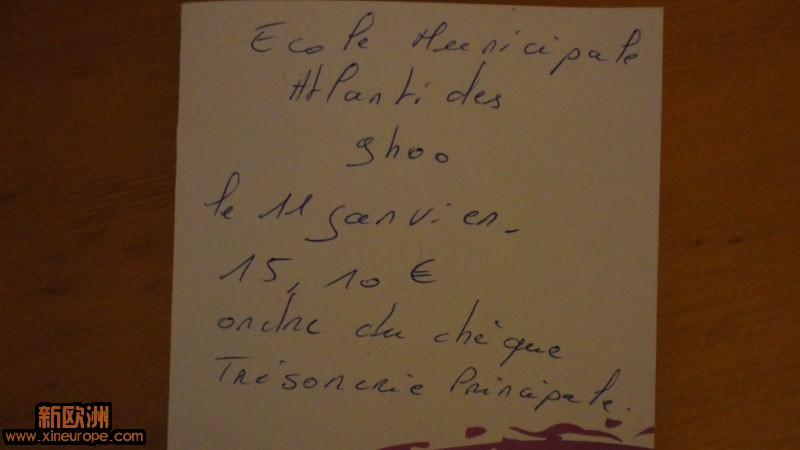 Ecole Municipale
Atlantides
9h00
le 11 janvier.
15,10 €
ordre du chèque
Trésorerie Principale.
新欧洲
www.xineurope.com